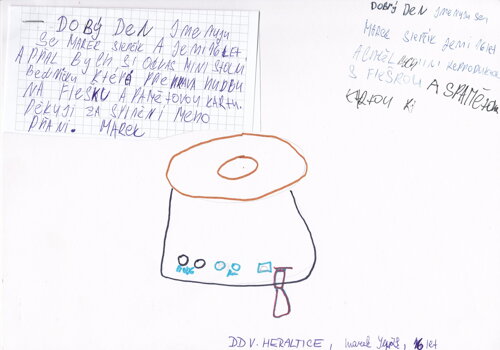 DOBRÝ DEN Jmenuju
SE MAREK A JEMI 16 LET.
A PŘÁL BYCH SI OD VÁS MINI STOLNÍ
BEDÝNKU KTERÁ PŘEHRÁVÁ HUDBU
NA FLEŠKU A PAMĚŤOVOU KARTU.
DĚKUJI ZA SPLNĚNÍ MÉHO
PŘÁNÍ. MAREK
DOBRÝ DEN Jmenuju SE
MAREK JEMI 16 LET
A CHTĚL MINI REPRODUKTOR
S FLEŠKOU A S PAMĚŤOVOU
KARTOU
DD V. HERALTICE, Marek 16 let